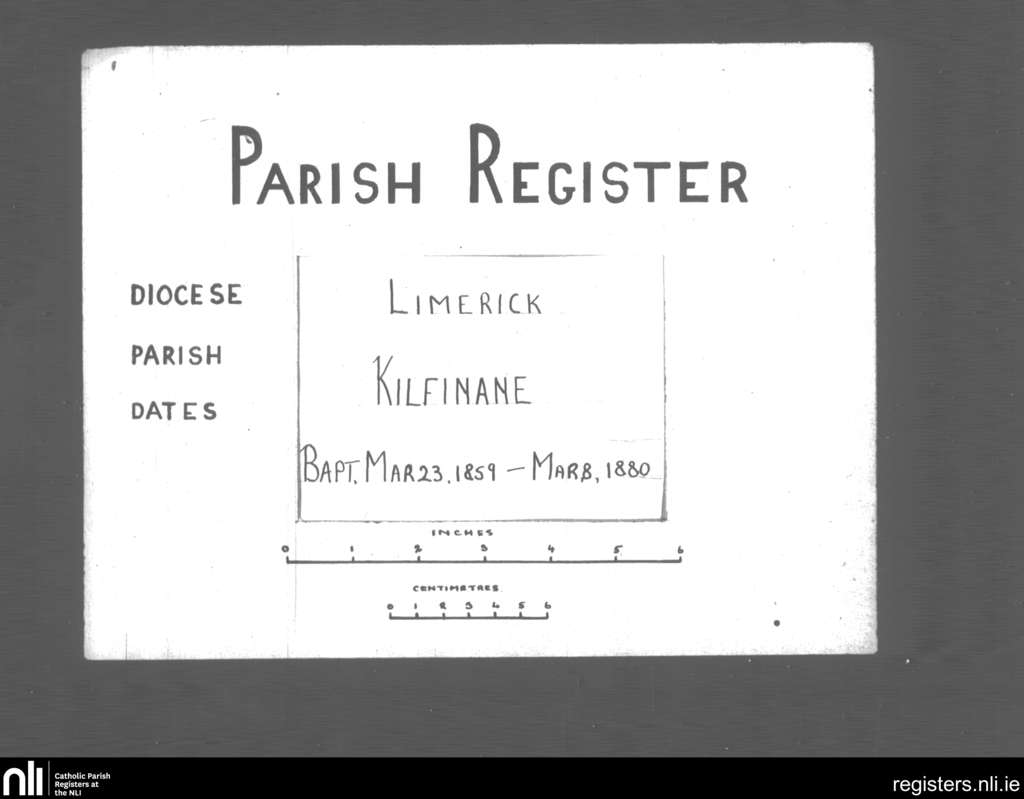 PARISH REGISTER
DIOCESE LIMERICK
PARISH KILFINANE
DATES BAPT. MAR 23, 1859 – MAR 8, 1880
INCHES
0 1 2 3 4 5 6
CENTIMETRES
0 1 2 3 4 5 6
nli
Catholic Parish
Registers at
the NLI
registers.nli.ie